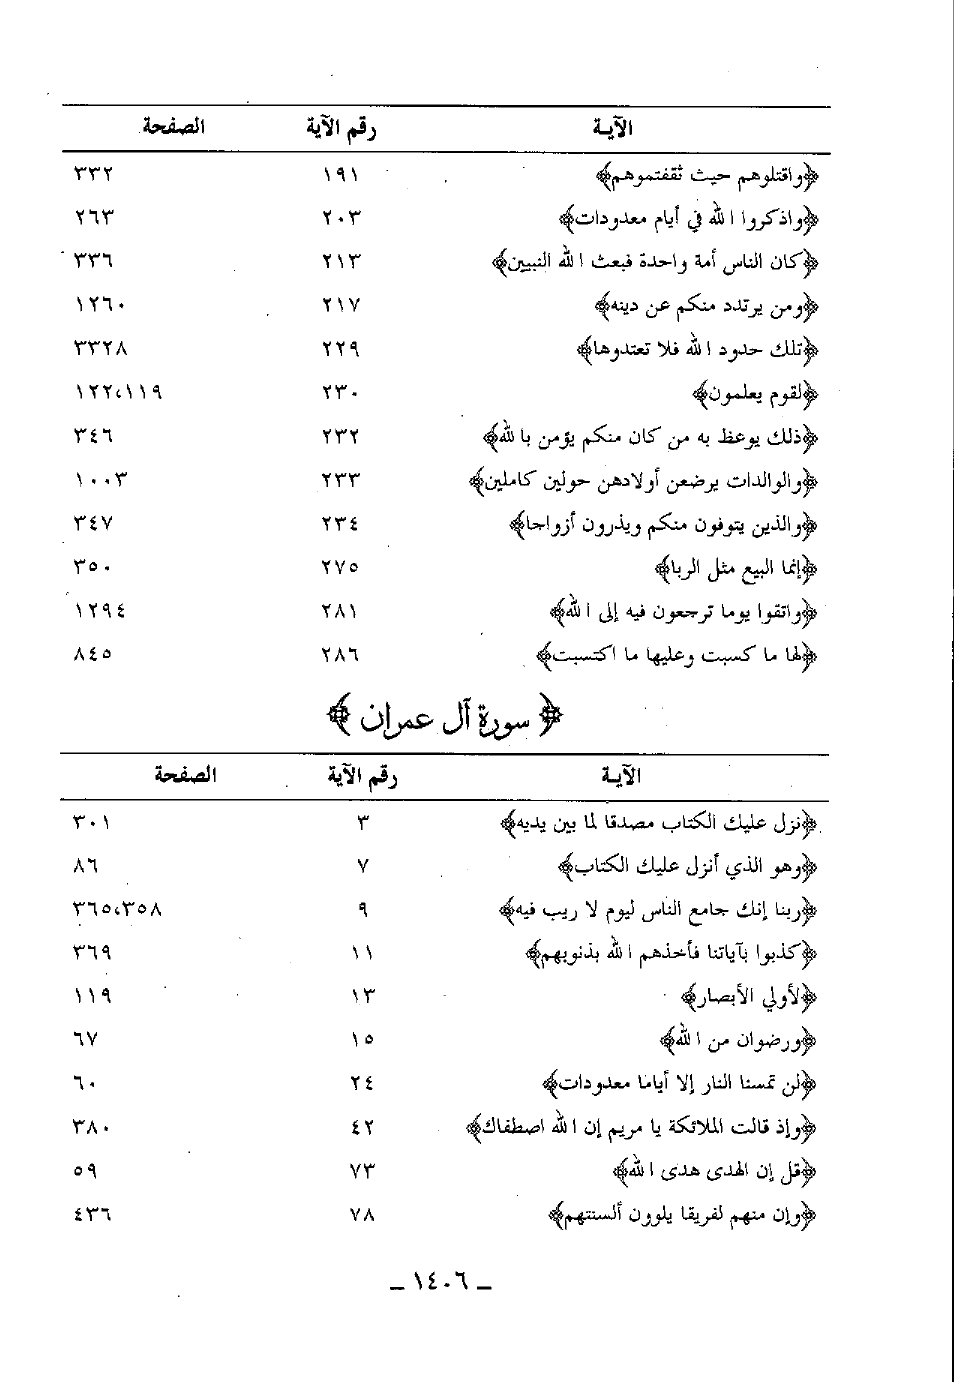 الآية رقم الآية الصفحة
﴿واقتلوهم حيث ثقفتموهم﴾ ١٩١ ٣٣٢
﴿واذكروا الله في أيام معدودات﴾ ٢٠٣ ٢٦٣
﴿كان الناس أمة واحدة فبعث الله النبيين﴾ ٢١٣ ٣٣٦
﴿ومن يرتدد منكم عن دينه﴾ ٢١٧ ١٢٦٠
﴿تلك حدود الله فلا تعتدوها﴾ ٢٢٩ ٣٣٢٨
﴿لقوم يعلمون﴾ ٢٣٠ ١٢٢،١١٩
﴿ذلك يوعظ به من كان منكم يؤمن بالله﴾ ٢٣٢ ٣٤٦
﴿والوالدات يرضعن أولادهن حولين كاملين﴾ ٢٣٣ ١٠٠٣
﴿والذين يتوفون منكم ويذرون أزواجا﴾ ٢٣٤ ٣٤٧
﴿إنما البيع مثل الربا﴾ ٢٧٥ ٣٥٠
﴿واتقوا يوما ترجعون فيه إلى الله﴾ ٢٨١ ١٢٩٤
﴿لها ما كسبت وعليها ما اكتسبت﴾ ٢٨٦ ٨٤٥
﴿ سورة آل عمران ﴾
الآية رقم الآية الصفحة
﴿نزل عليك الكتاب مصدقا لما بين يديه﴾ ٣ ٣٠١
﴿وهو الذي أنزل عليك الكتاب﴾ ٧ ٨٦
﴿ربنا إنك جامع الناس ليوم لا ريب فيه﴾ ٩ ٣٦٥،٣٥٨
﴿كذبوا بآياتنا فأخذهم الله بذنوبهم﴾ ١١ ٣٦٩
﴿لأولي الأبصار﴾ ١٣ ١١٩
﴿ورضوان من الله﴾ ١٥ ٦٧
﴿لن تمسنا النار إلا أياما معدودات﴾ ٢٤ ٦٠
﴿وإذ قالت الملائكة يا مريم إن الله اصطفاك﴾ ٤٢ ٣٨٠
﴿قل إن الهدى هدى الله﴾ ٧٣ ٥٩
﴿وإن منهم لفريقا يلوون ألسنتهم﴾ ٧٨ ٤٣٦
ـ ١٤٠٦ ـ